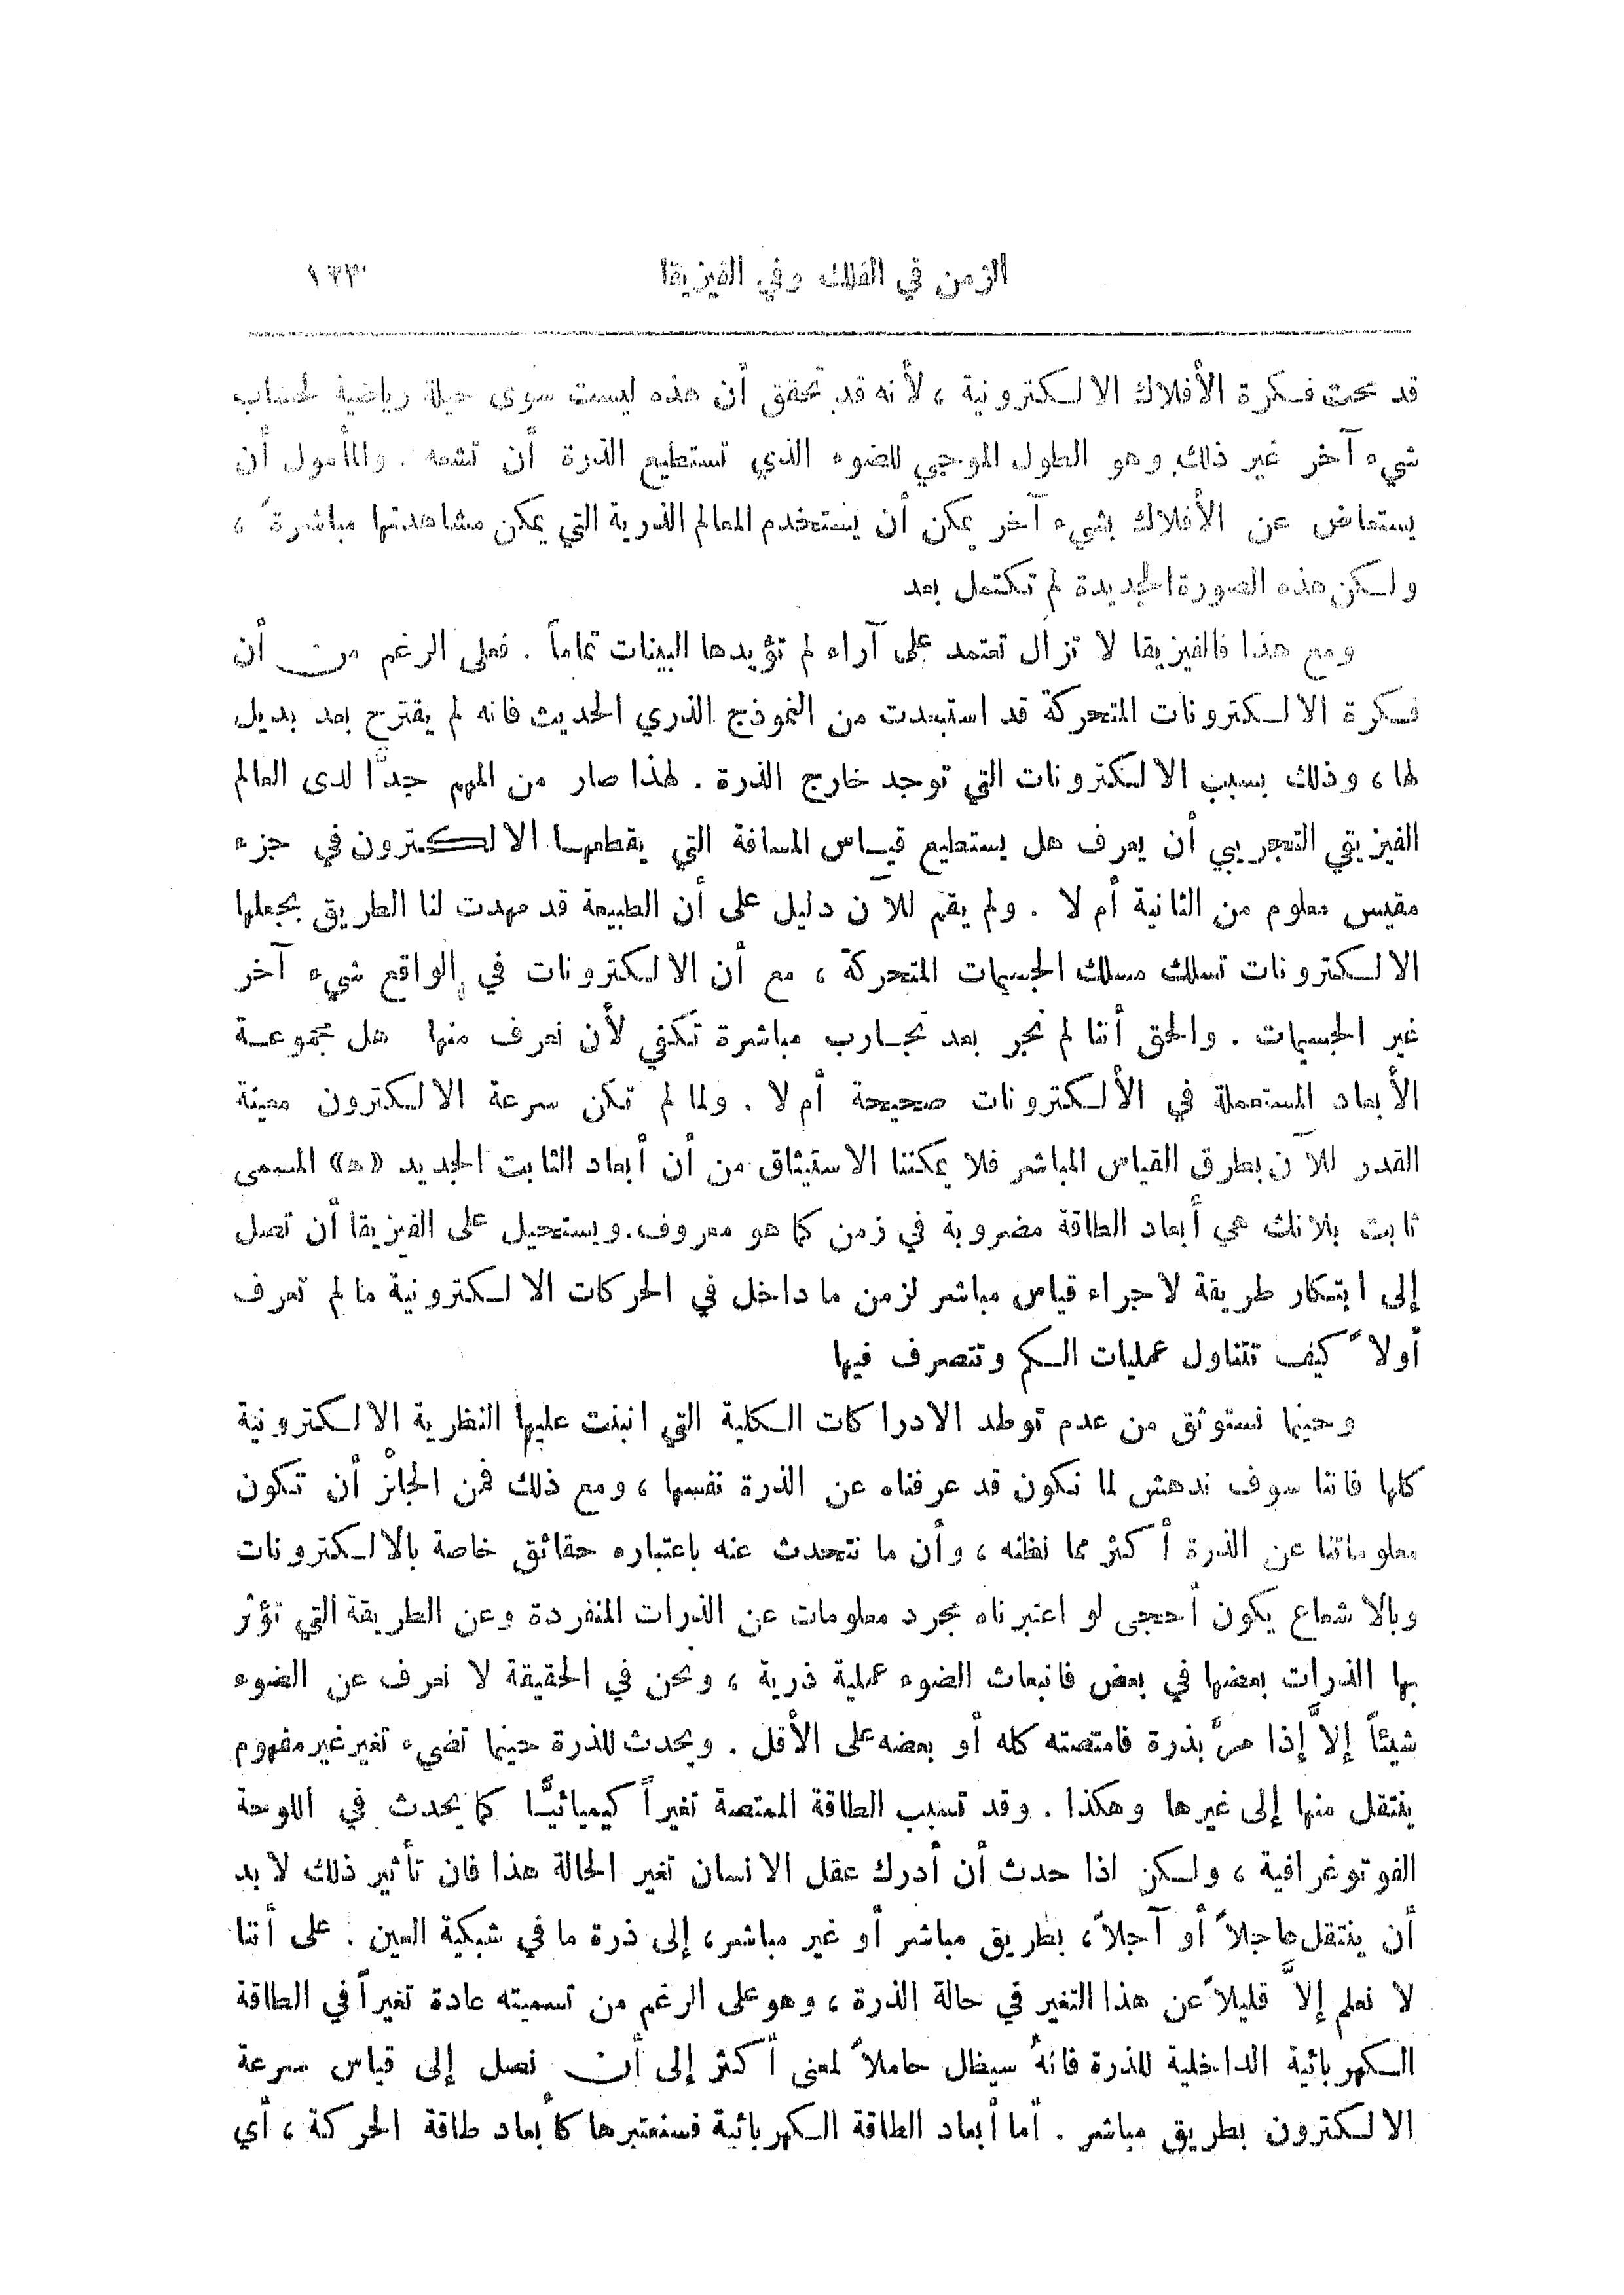 الزمن في الفلك وفي الفيزيقا ١٣٣
قد محت فكرة الأفلاك الالكترونية ، لأنه قد تحقق أن هذه ليست سوى حيلة رياضية لحساب
شيء آخر غير ذلك وهو الطول الموجي للضوء الذي تستطيع الذرة أن تشعه . والمأمول أن
يستعاض عن الأفلاك بشيء آخر يمكن أن يستخدم المعالم الذرية التي يمكن مشاهدتها مباشرةً ،
ولكن هذه الصورة الجديدة لم تكتمل بعد
ومع هذا فالفيزيقا لا تزال تعتمد على آراء لم تؤيدها البينات تماماً . فعلى الرغم من أن
فكرة الالكترونات المتحركة قد استبعدت من النموذج الذري الحديث فانه لم يقترح بعد بديل
لها ، وذلك بسبب الالكترونات التي توجد خارج الذرة . لهذا صار من المهم جدًّا لدى العالم
الفيزيقي التجريبي أن يعرف هل يستطيع قياس المسافة التي يقطعها الالكترون في جزء
مقيس معلوم من الثانية أم لا . ولم يقم للآن دليل على أن الطبيعة قد مهدت لنا الطريق بجعلها
الالكترونات تسلك مسلك الجسيمات المتحركة ، مع أن الالكترونات في الواقع شيء آخر
غير الجسيمات . والحق أننا لم نجر بعد تجارب مباشرة تكفي لأن نعرف منها هل مجموعة
الأبعاد المستعملة في الألكترونات صحيحة أم لا . ولما لم تكن سرعة الالكترون معينة
القدر للآن بطرق القياس المباشر فلا يمكننا الاستيثاق من أن أبعاد الثابت الجديد «ه» المسمى
ثابت بلانك هي أبعاد الطاقة مضروبة في زمن كما هو معروف. ويستحيل على الفيزيقا أن تصل
إلى ابتكار طريقة لاجراء قياس مباشر لزمن ما داخل في الحركات الالكترونية ما لم تعرف
أولاً كيف تتناول عمليات الكم وتتصرف فيها
وحينما نستوثق من عدم توطد الادراكات الكلية التي انبنت عليها النظرية الالكترونية
كلها فاننا سوف ندهش لما نكون قد عرفناه عن الذرة نفسها ، ومع ذلك فمن الجائز أن تكون
معلوماتنا عن الذرة أكثر مما نظنه ، وأن ما نتحدث عنه باعتباره حقائق خاصة بالالكترونات
وبالاشعاع يكون أحجى لو اعتبرناه مجرد معلومات عن الذرات المنفردة وعن الطريقة التي تؤثر
بها الذرات بعضها في بعض فانبعاث الضوء عملية ذرية ، ونحن في الحقيقة لا نعرف عن الضوء
شيئاً إلاَّ إذا مرَّ بذرة فامتصته كله أو بعضه على الأقل . ويحدث للذرة حينما تضيء تغير غير مفهوم
ينتقل منها إلى غيرها وهكذا . وقد تسبب الطاقة الممتصة تغيراً كيميائيًّا كما يحدث في اللوحة
الفوتوغرافية ، ولكن اذا حدث أن أدرك عقل الانسان تغير الحالة هذا فان تأثير ذلك لا بد
أن ينتقل عاجلاً أو آجلاً، بطريق مباشر أو غير مباشر، إلى ذرة ما في شبكية العين . على أننا
لا نعلم إلاَّ قليلاً عن هذا التغير في حالة الذرة ، وهو على الرغم من تسميته عادة تغيراً في الطاقة
الكهربائية الداخلية للذرة فانهُ سيظل حاملاً لمعنى أكثر إلى أن نصل إلى قياس سرعة
الالكترون بطريق مباشر . أما أبعاد الطاقة الكهربائية فسنعتبرها كأبعاد طاقة الحركة ، أي